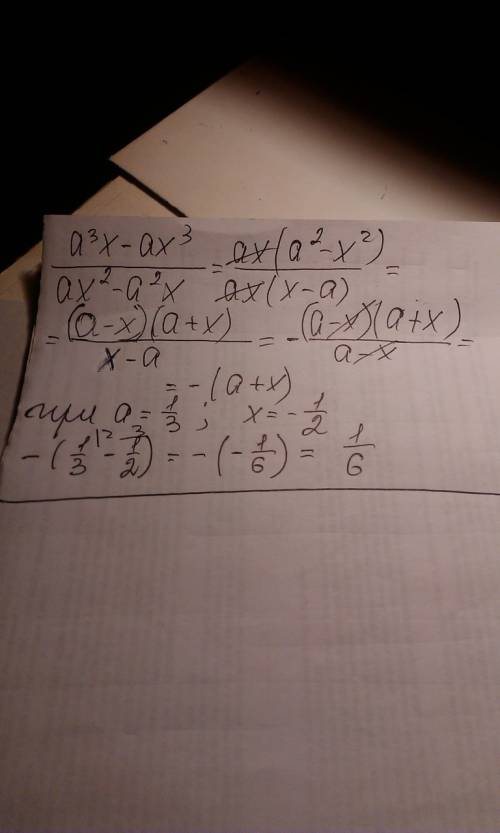 a³x-ax³/ax²-a²x = ax(a²-x²)/ax(x-a) =
= (a-x)(a+x)/x-a = -(a-x)(a+x)/a-x =
= -(a+x)
при a = 1/3; x = -1/2
-(1/3 |² - 1/2 ³) = -(-1/6) = 1/6